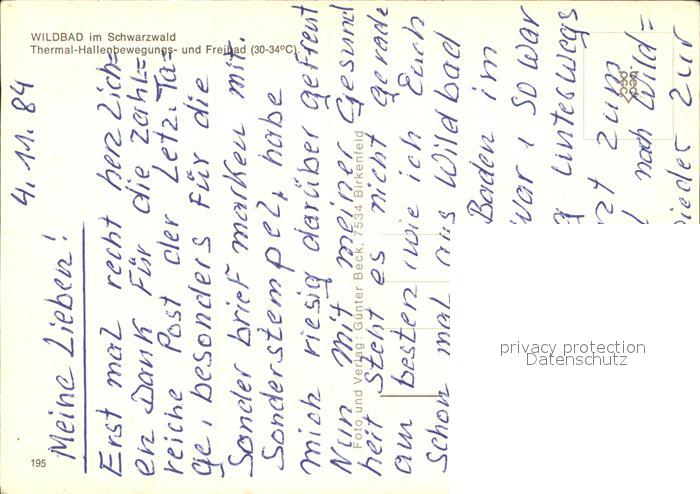 WILDBAD im Schwarzwald
Thermal-Hallenbewegungs- und Freibad (30-34°C).
4.11.84
Meine Lieben!
Erst mal recht herzlich=
en Dank für die zahl=
reiche Post der Letz. Ta=
ge, besonders für die
Sonderbriefmarken mit.
Sonderstempel, habe
mich riesig darüber gefreut
Nun mit meiner Gesund
heit steht es nicht gerade
am besten, wie ich Euch
schon mal aus Wildbad
Baden im
war, so war
unterwegs
zum
nach Wild=
wieder zur
Foto und Verlag: Günter Beck, 7534 Birkenfeld
195
privacy protection
Datenschutz